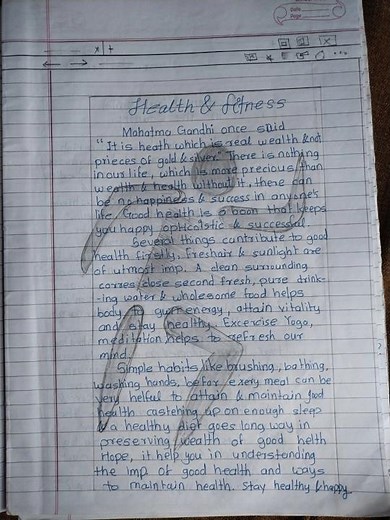 Date
Page
x +
Health & fitness
Mahatma Gandhi once said
"It is heath which is real wealth & not
prieces of gold & silver." There is nothing
in our life, which is more precious than
wealth & health without it, there can
be no happiness & success in anyone's
life. Good health is a boon that keeps
you happy opticalstic & successful
Several things cantribute to good
health firstly, Freshair & sunlight are
of utmost imp. A clean surrounding
corres close second fresh, pure drink-
-ing water & wholesome food helps
body to energy, attain vitality
and stay healthy. Excercise Yoga,
meditation helps to refresh our
mind.
Simple habits like brushing, bathing,
washing hands, befor exery meal can be
very helful to attain & maintain good
health castching up on enough sleep
& a healthy diet goes long way in
preserving wealth of good helth
Hope, it help you in understanding
the imp of good health and ways
to maintain health. Stay healthy & happy